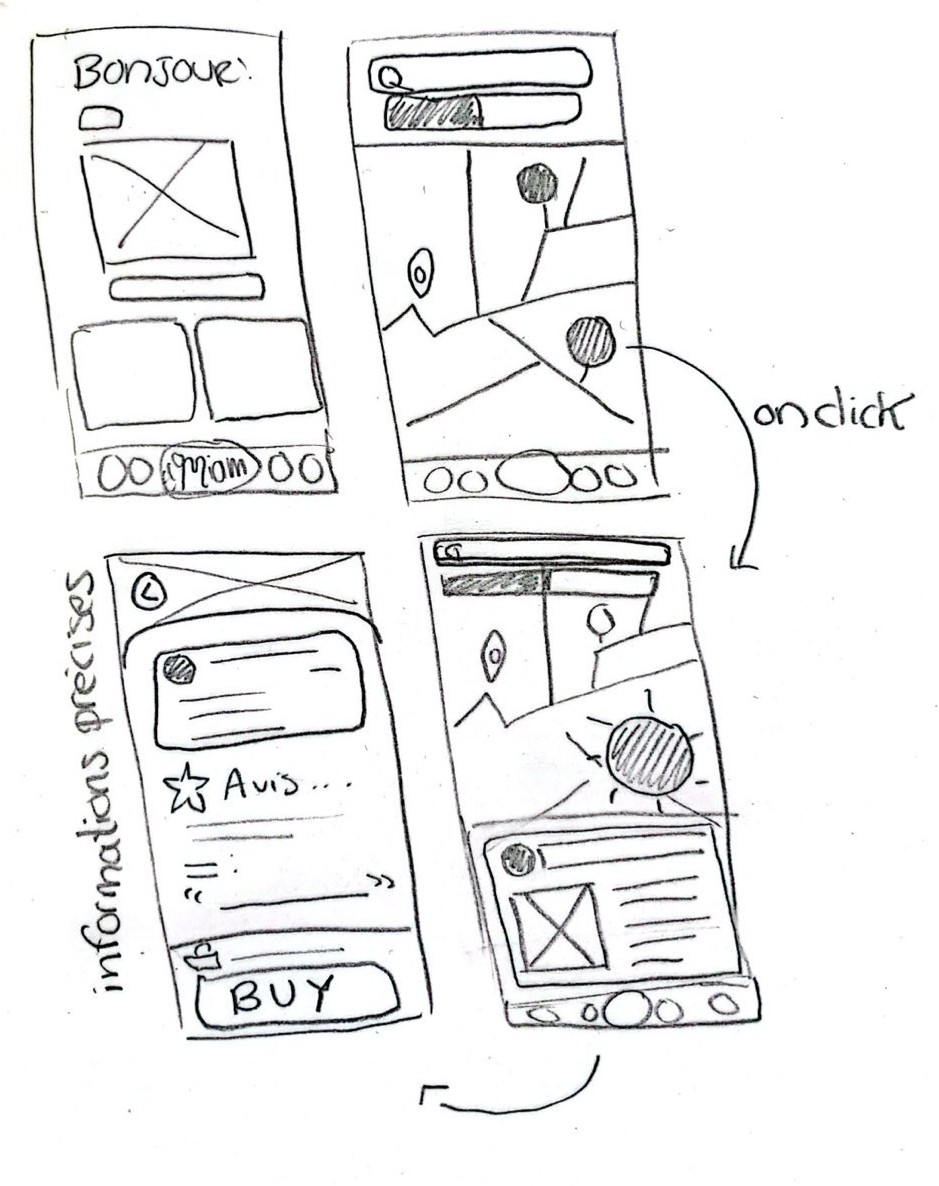 Bonjour:
Miam
on click
informations précises
Avis...
= :
“ ”
BUY